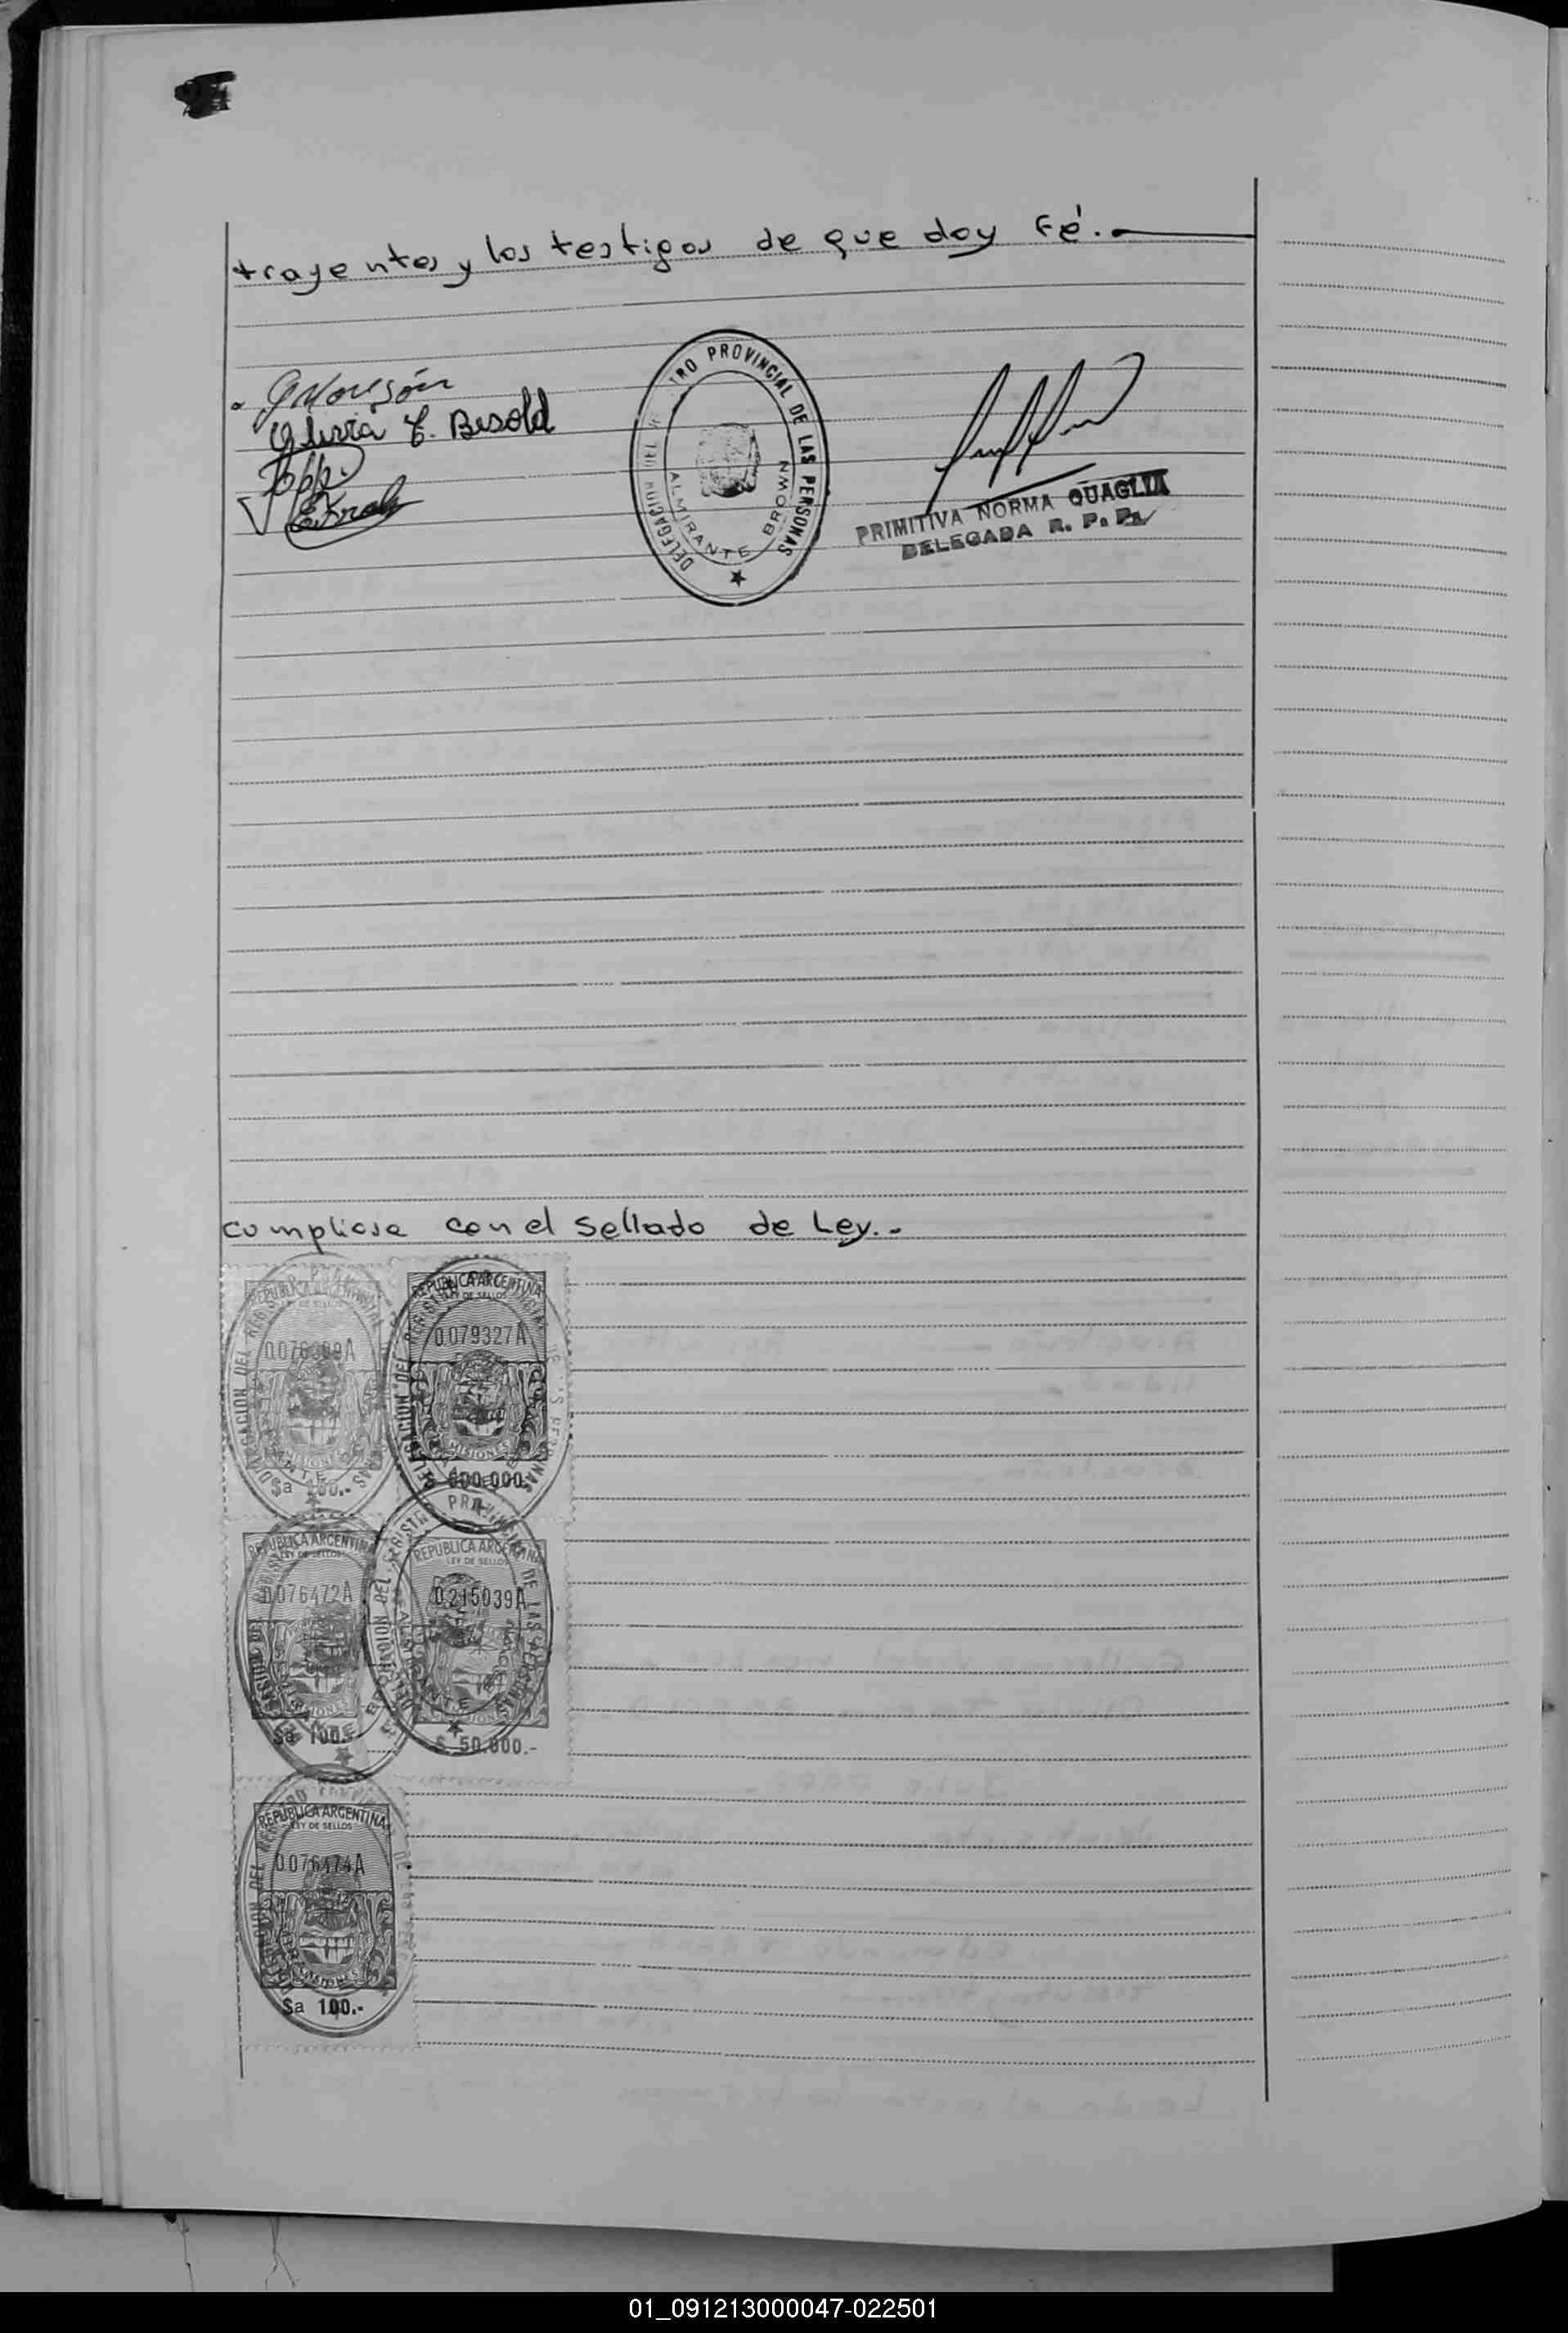 trayentes y los testigos de que doy Fé.-
Besold
DELEGACION DEL REGISTRO PROVINCIAL DE LAS PERSONAS
ALMIRANTE BROWN
PRIMITIVA NORMA QUAGLIA
DELEGADA R. P. P.
cumpliose con el Sellado de Ley.-
REPUBLICA ARGENTINA
LEY DE SELLOS
MISIONES
$a 100.-
REPUBLICA ARGENTINA
LEY DE SELLOS
0079327A
MISIONES
REPUBLICA ARGENTINA
LEY DE SELLOS
0076472A
MISIONES
$a 100.-
REPUBLICA ARGENTINA
LEY DE SELLOS
0215039A
MISIONES
$ 50.000.-
REPUBLICA ARGENTINA
LEY DE SELLOS
0076474A
MISIONES
$a 100.-
01_091213000047-022501